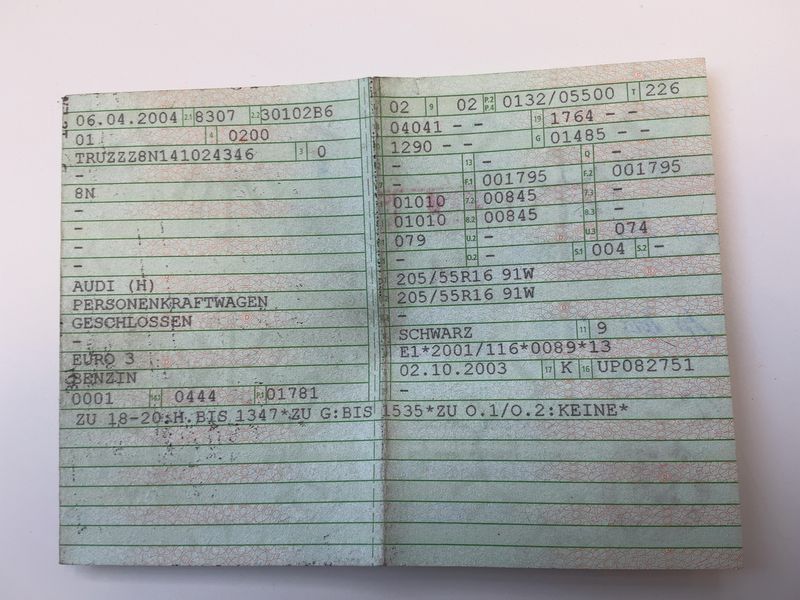 06.04.2004 2.1 8307 2.2 30102B6
01 4 0200
TRUZZZ8N141024346 3 0
–
8N
–
–
–
–
AUDI (H)
PERSONENKRAFTWAGEN
GESCHLOSSEN
–
EURO 3
BENZIN
0001 0444 P.1 01781
02 9 02 P.2 P.4 0132/05500 T 226
04041 – – 19 1764 – –
1290 – – G 01485 – –
– 13 – Q –
– F.1 001795 F.2 001795
01010 7.2 00845 7.3 –
01010 8.2 00845 8.3 –
079 U.2 – U.3 074
– O.2 – S.1 004 S.2 –
205/55R16 91W
205/55R16 91W
–
SCHWARZ 11 9
E1*2001/116*0089*13
02.10.2003 17 K 16 UP082751
–
ZU 18-20:H.BIS 1347*ZU G:BIS 1535*ZU O.1/O.2:KEINE*